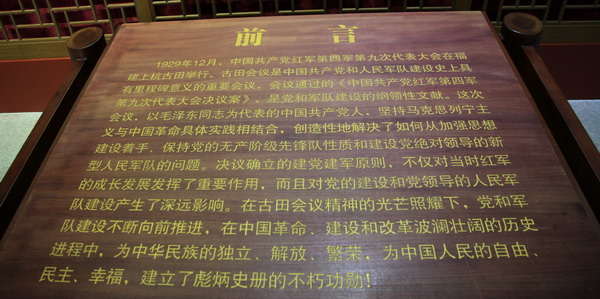 前言
1929年12月，中国共产党红军第四军第九次代表大会在福
建上杭古田举行。古田会议是中国共产党和人民军队建设史上具
有里程碑意义的重要会议。会议通过的《中国共产党红军第四军
第九次代表大会决议案》，是党和军队建设的纲领性文献。这次
会议，以毛泽东同志为代表的中国共产党人，坚持马克思列宁主
义与中国革命具体实践相结合，创造性地解决了如何从加强思想
建设着手，保持党的无产阶级先锋队性质和建设党绝对领导的新
型人民军队的问题。决议确立的建党建军原则，不仅对当时红军
的成长发展发挥了重要作用，而且对党的建设和党领导的人民军
队建设产生了深远影响。在古田会议精神的光芒照耀下，党和军
队建设不断向前推进，在中国革命、建设和改革波澜壮阔的历史
进程中，为中华民族的独立、解放、繁荣，为中国人民的自由、
民主、幸福，建立了彪炳史册的不朽功勋！